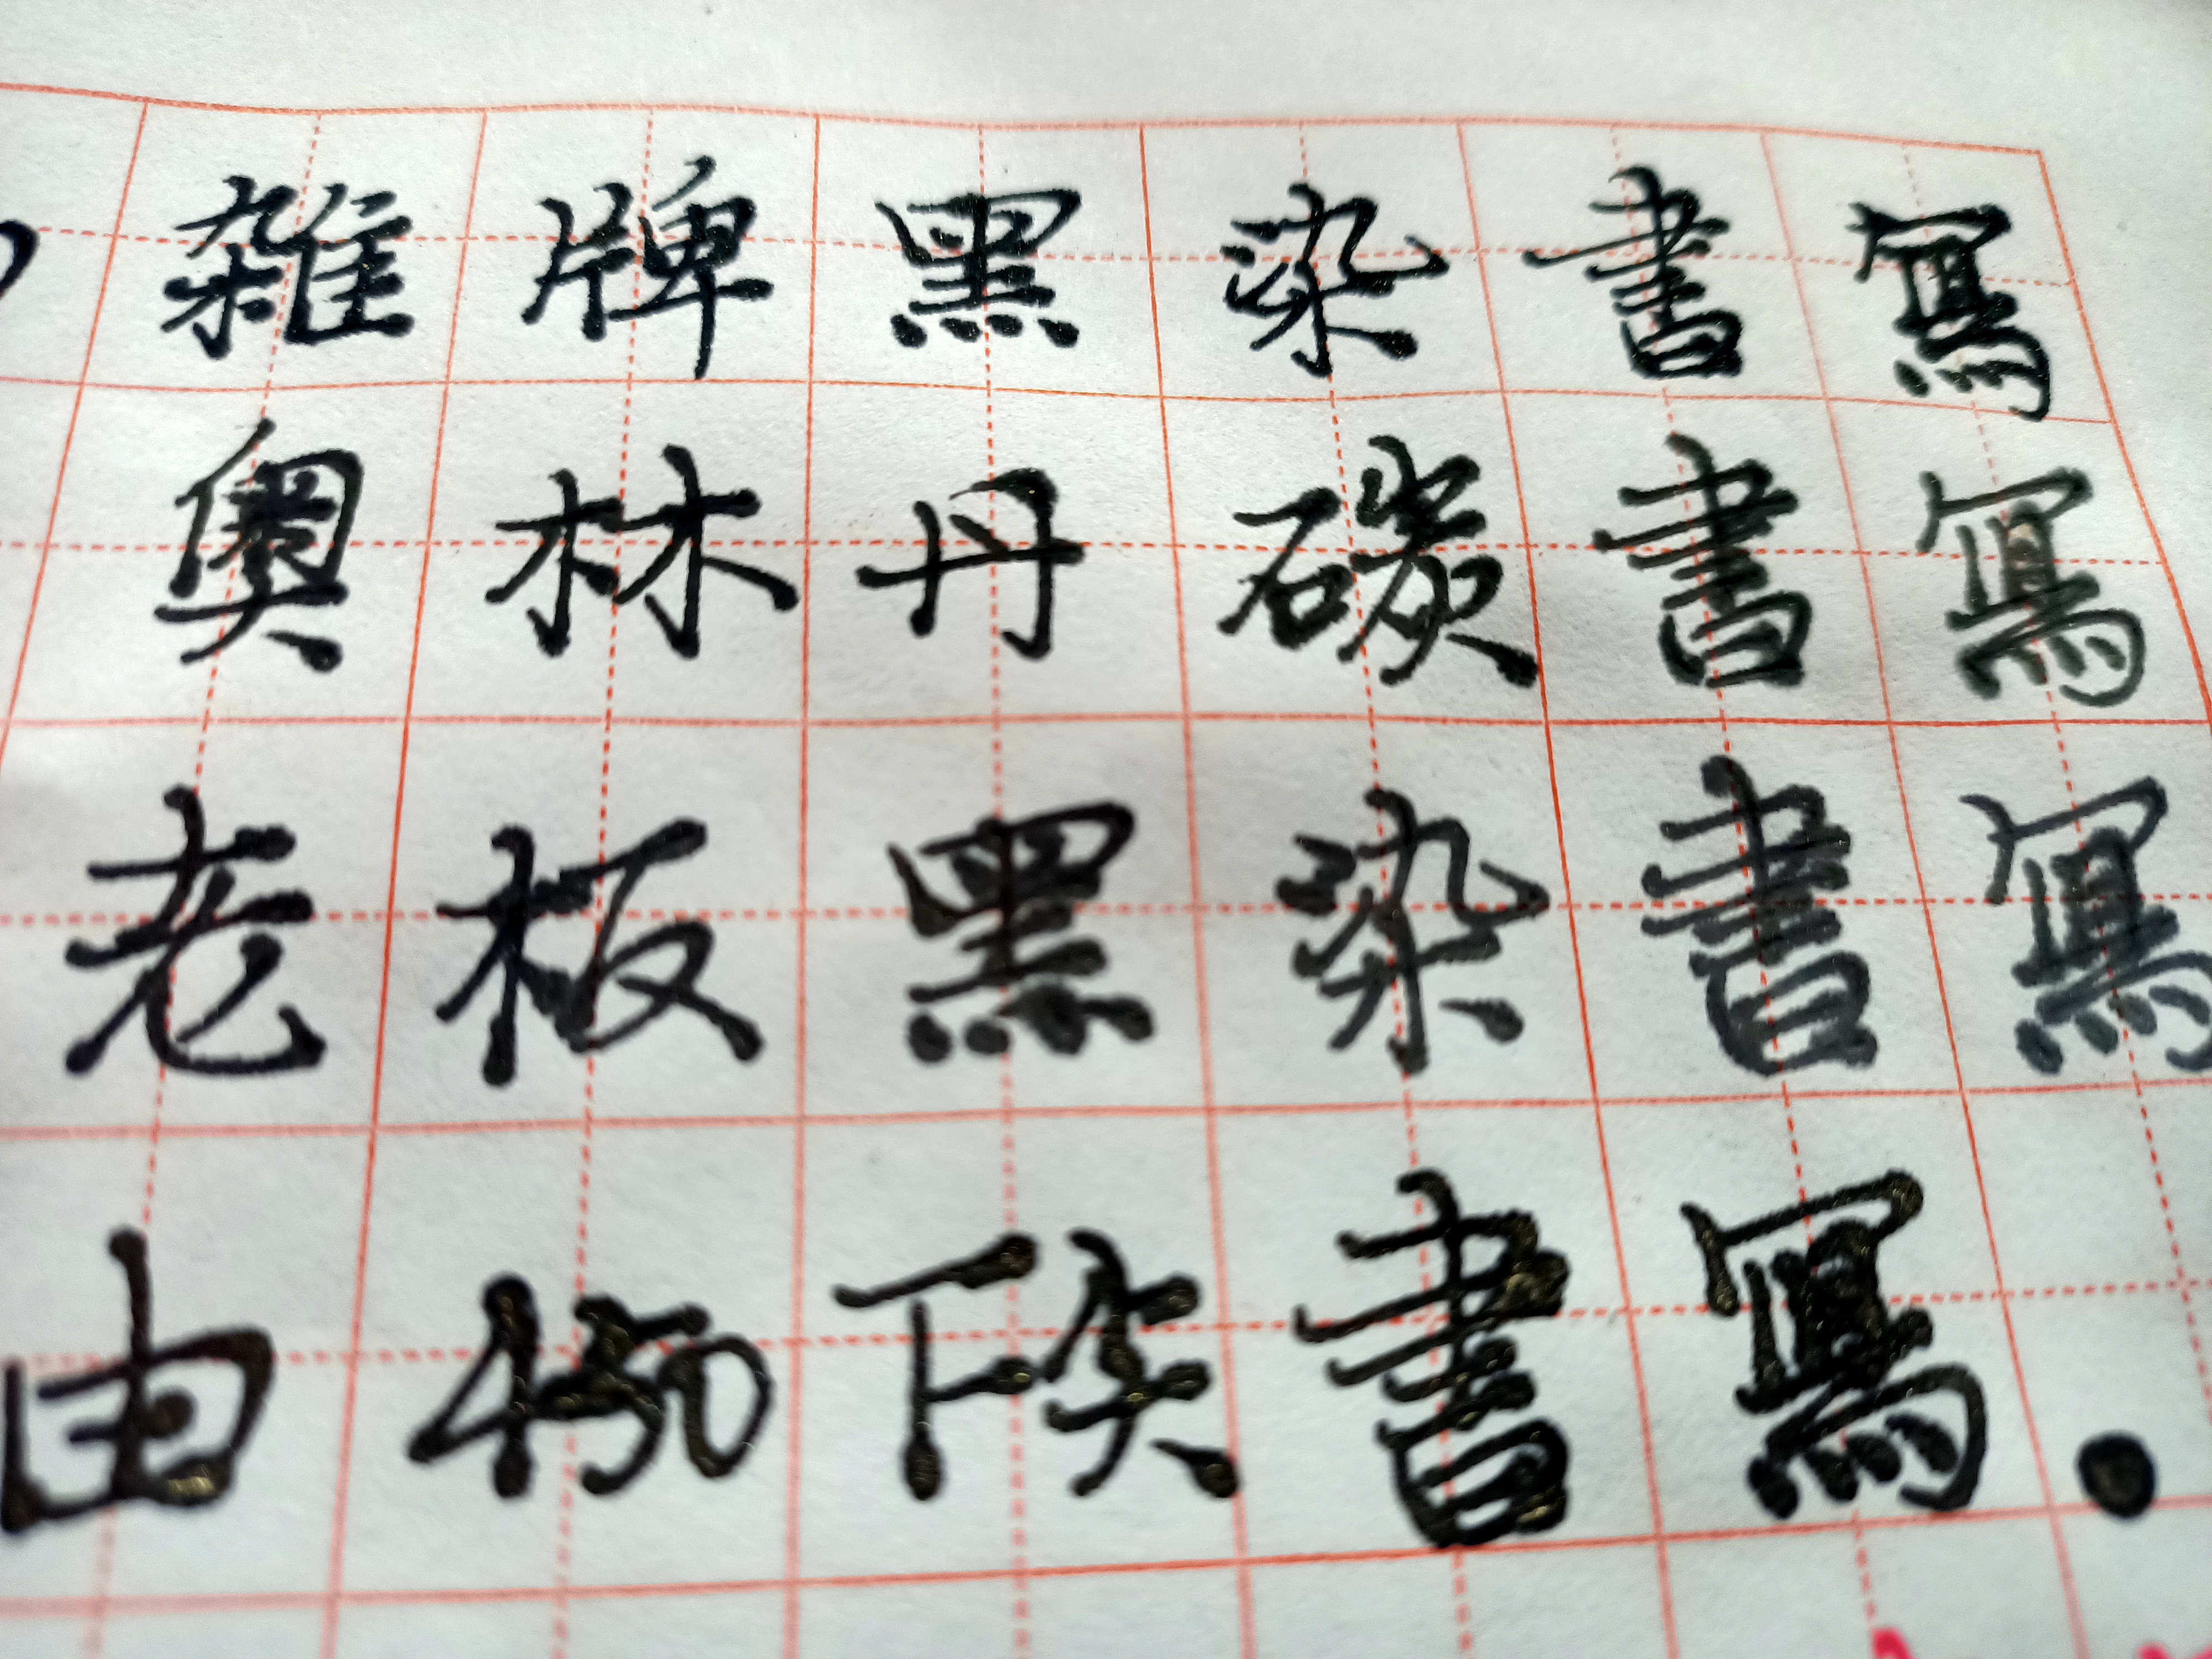 雜牌黑染書寫
奧林丹碳書寫
老板黑染書寫
由450下尖書寫.